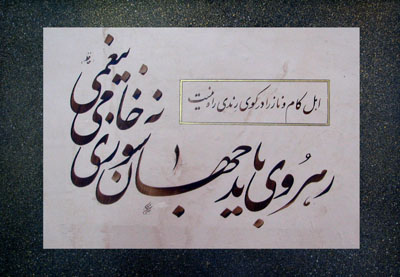 اهل کام و ناز را در کوی رندی راه نیست
رهروی باید جهان سوزی نه خامی بیغمی